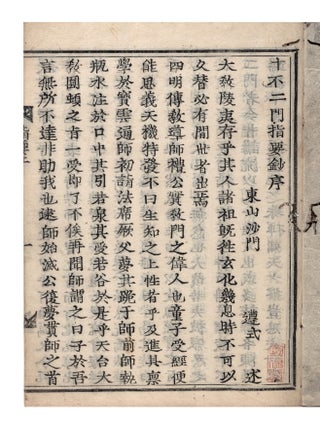 十不二門指要鈔序
東山沙門 遵式 述
大教陵夷存乎其人諸祖既往玄化幾息時不可以
久替必有間世者出焉
四明傳教導師禮公實教門之偉人也童子受經便
能思義天機特發不曰生知之上性者乎及進具稟
學於寶雲通師初請法席厥父夢其跪于師前師執
瓶水注於口中其引若泉其受若谷於是乎天台大
教圓頓之旨一受即了不俟再聞師謂之曰子於吾
言無所不達非助我也逮師始滅公復夢貫師之首